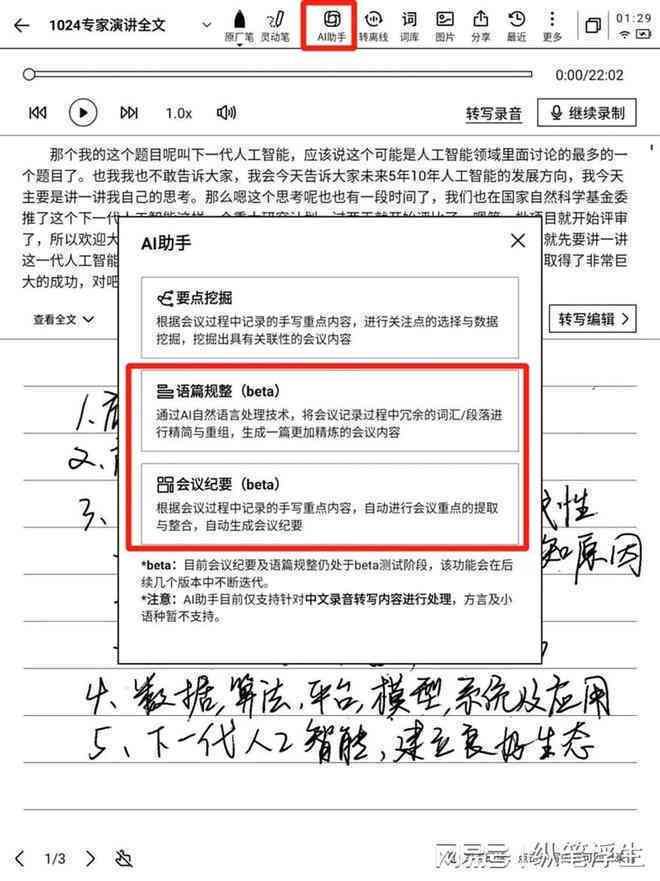 1024专家演讲全文
01:29
原厂笔 灵动笔 AI助手 转离线 词库 图片 分享 最近 更多
0:00/22:02
1.0x
转写录音
继续录制
那个我的这个题目呢叫下一代人工智能，应该说这个可能是人工智能领域里面讨论的最多的一
个题目了。也我我也不敢告诉大家，我会今天告诉大家未来5年10年人工智能的发展方向，我今天
主要是讲一讲我自己的思考。那么嗯这个思考呢也也有一段时间了，我们也在国家自然科学基金委
推了这个下一代人工智能这样一个重大研究计划
了，所以欢迎大 就先要讲一讲
这一代人工智能 取得了非常巨
大的成功，对吧
查看全文
转写编辑
AI助手
要点挖掘
根据会议过程中记录的手写重点内容，进行关注点的选择与数据
挖掘，挖掘出具有关联性的会议内容
语篇规整（beta）
通过AI自然语言处理技术，将会议记录过程中冗余的词汇/段落进
行精简与重组，生成一篇更加精炼的会议内容
会议纪要（beta）
根据会议过程中记录的手写重点内容，自动进行会议重点的提取
与整合，自动生成会议纪要
*beta：目前会议纪要及语篇规整仍处于beta测试阶段，该功能会在后
续几个版本中不断迭代。
*注意：AI助手目前仅支持针对中文录音转写内容进行处理，方言及小
语种暂不支持。
1.
2.
3、 性
知原因
4、数据,算法,平台,模型,系统及应用
5、下一代人工智能,建立良好生态
1/3
网易号 | 纵笔浮生